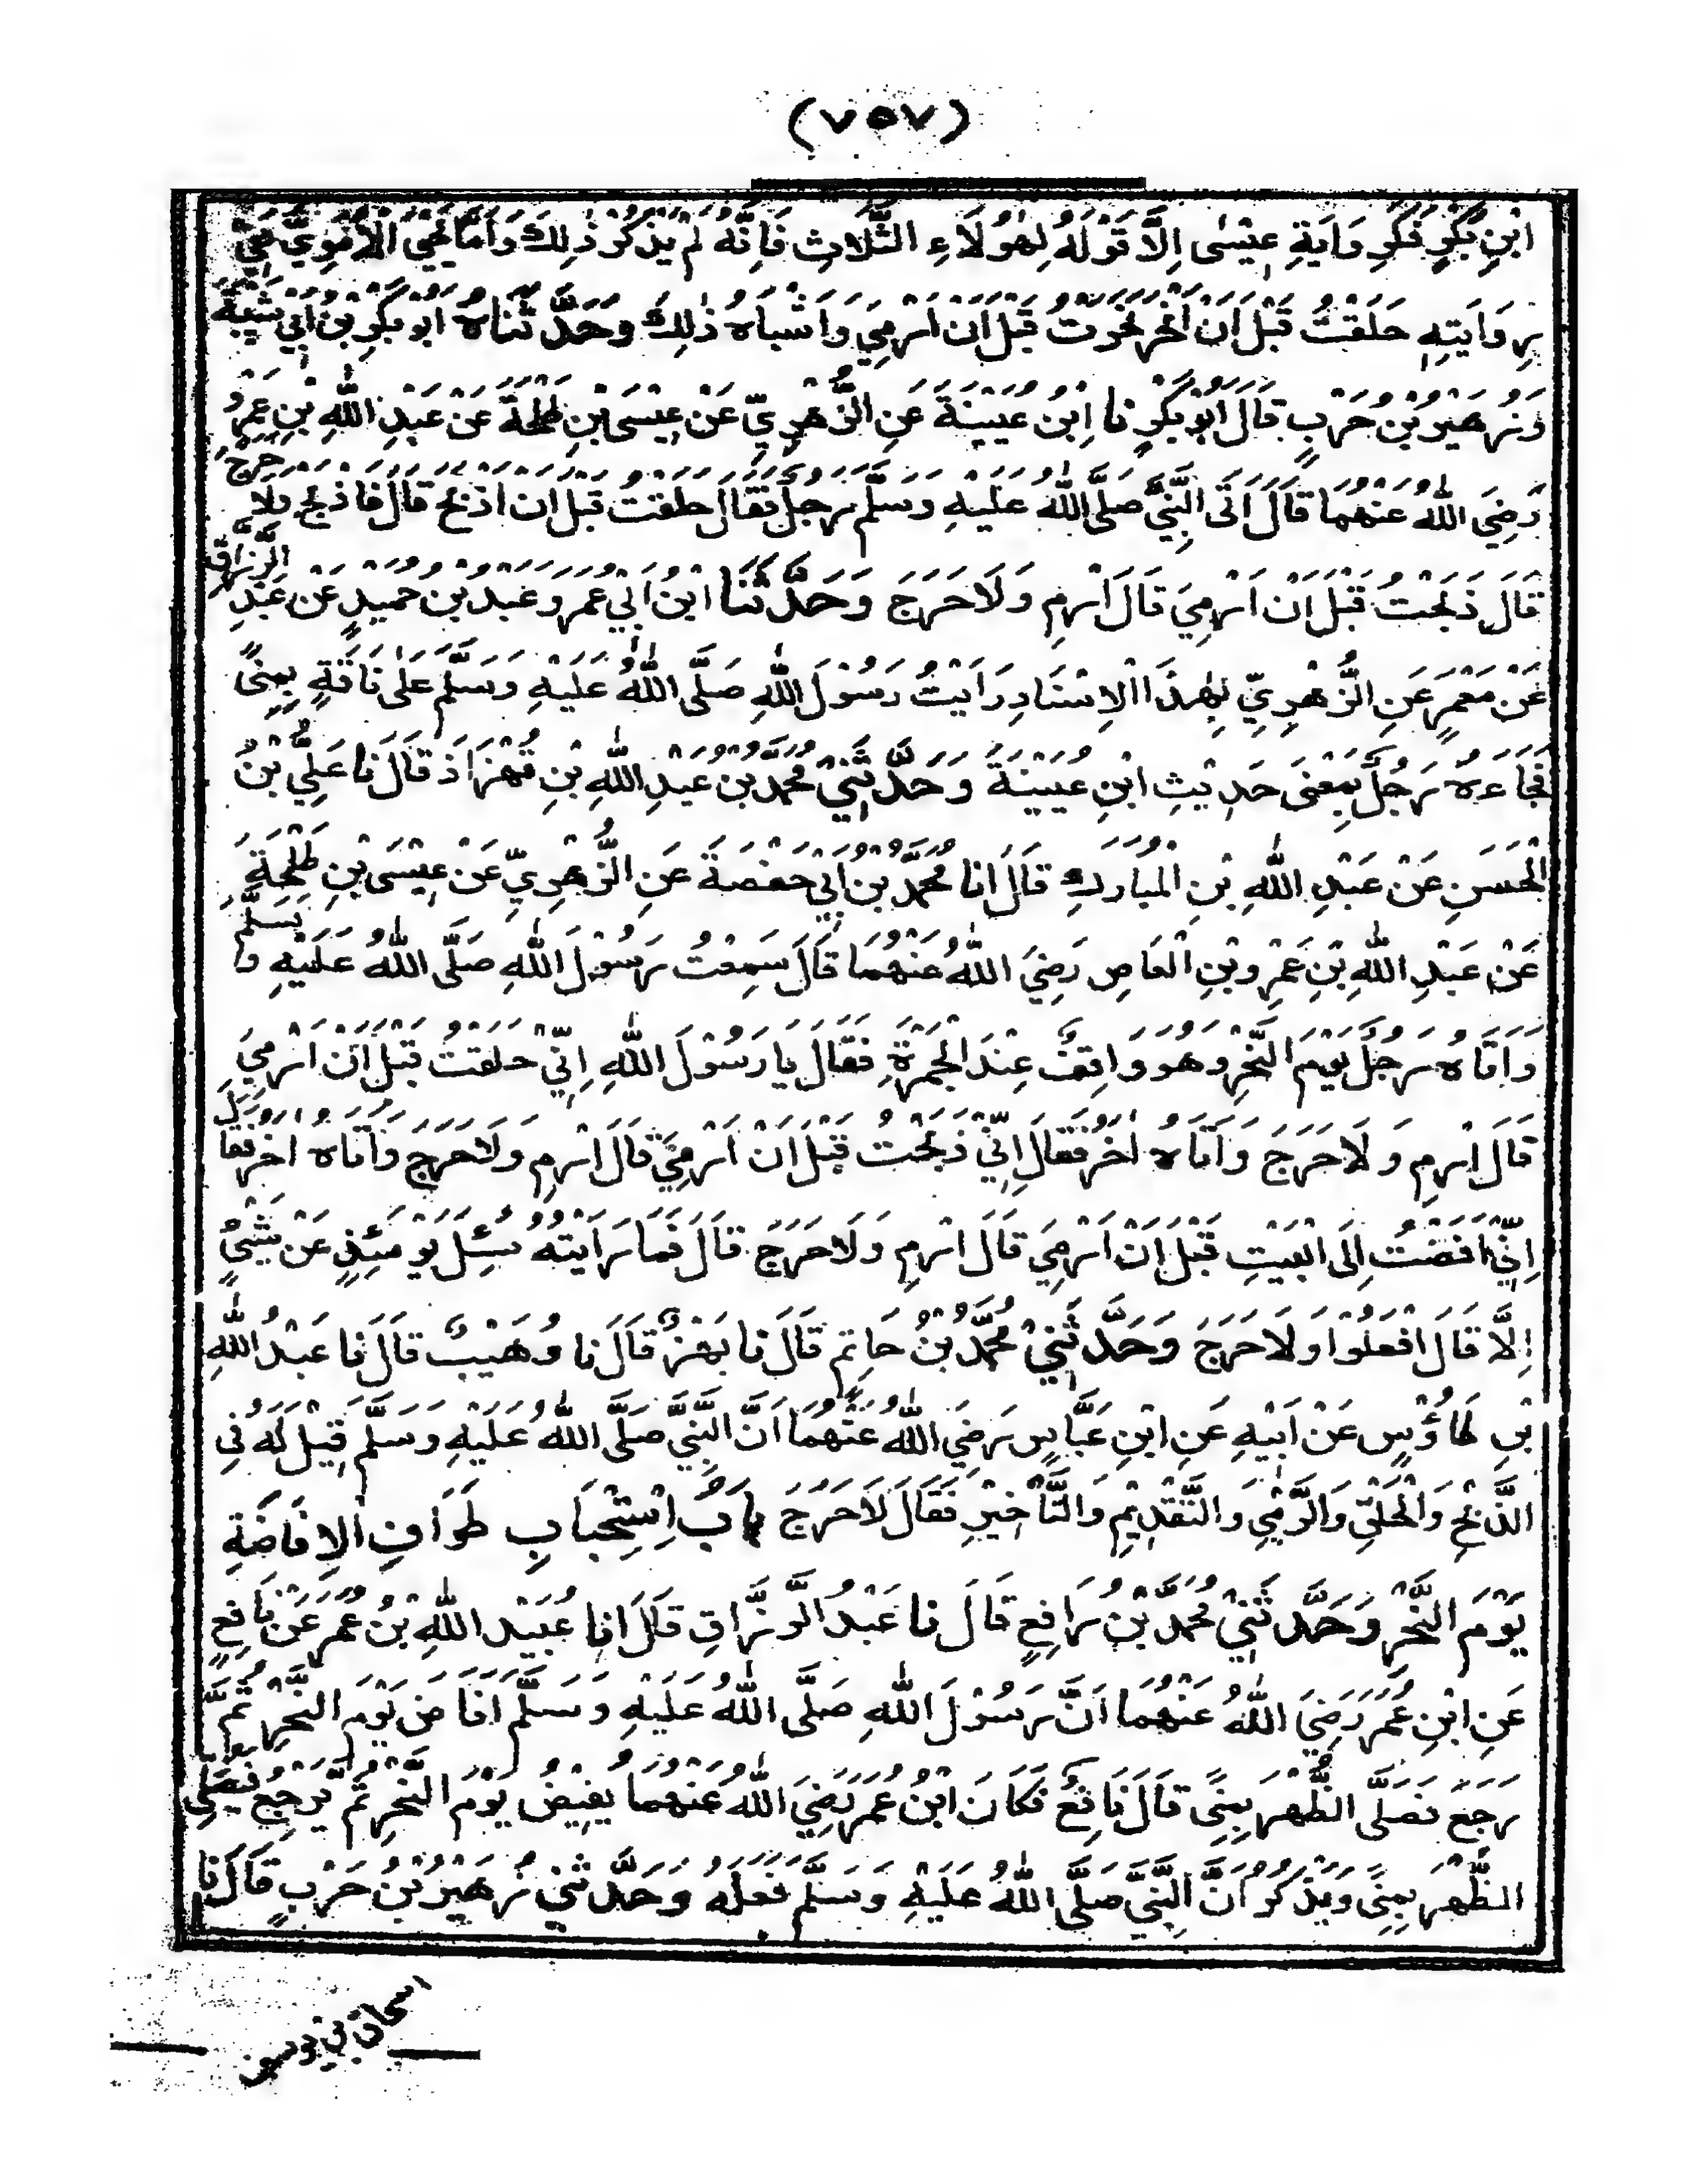 (٧٥٧)
ابْنِ بَكْرٍ فَكَرِوَايَةِ عِيْسٰى اِلَّا قَوْلَهُ لِهٰؤُلَاءِ الثَّلَاثِ فَاِنَّهُ لَمْ يَذْكُرْ ذٰلِكَ وَاَمَّا يَحْيَى الْاُمَوِيُّ فَفِيْ
رِوَايَتِهٖ حَلَقْتُ قَبْلَ اَنْ اَنْحَرَ نَحَرْتُ قَبْلَ اَنْ اَرْمِيَ وَاَشْبَاهَ ذٰلِكَ وَحَدَّثَنَاهُ اَبُوْ بَكْرِ بْنُ اَبِيْ شَيْبَةَ
وَزُهَيْرُ بْنُ حَرْبٍ قَالَ اَبُوْ بَكْرٍ نا ابْنُ عُيَيْنَةَ عَنِ الزُّهْرِيِّ عَنْ عِيْسَى بْنِ طَلْحَةَ عَنْ عَبْدِ اللّٰهِ بْنِ عَمْرٍو
رَضِيَ اللّٰهُ عَنْهُمَا قَالَ اَتَى النَّبِيَّ صَلَّى اللّٰهُ عَلَيْهِ وَسَلَّمَ رَجُلٌ فَقَالَ حَلَقْتُ قَبْلَ اَنْ اَذْبَحَ قَالَ فَاذْبَحْ وَلَا حَرَجَ
قَالَ ذَبَحْتُ قَبْلَ اَنْ اَرْمِيَ قَالَ اَرْمِ وَلَا حَرَجَ وَحَدَّثَنَا ابْنُ اَبِيْ عُمَرَ وَعَبْدُ بْنُ حُمَيْدٍ عَنْ عَبْدِ الرَّزَّاقِ
عَنْ مَعْمَرٍ عَنِ الزُّهْرِيِّ بِهٰذَا الْاِسْنَادِ رَاَيْتُ رَسُوْلَ اللّٰهِ صَلَّى اللّٰهُ عَلَيْهِ وَسَلَّمَ عَلٰى نَاقَةٍ بِمِنًى
فَجَاءَهُ رَجُلٌ بِمَعْنَى حَدِيْثِ ابْنِ عُيَيْنَةَ وَحَدَّثَنِيْ مُحَمَّدُ بْنُ عَبْدِ اللّٰهِ بْنِ قُهْزَاذَ قَالَ نا عَلِيُّ بْنُ
الْحَسَنِ عَنْ عَبْدِ اللّٰهِ بْنِ الْمُبَارَكِ قَالَ اَنَا مُحَمَّدُ بْنُ اَبِيْ حَفْصَةَ عَنِ الزُّهْرِيِّ عَنْ عِيْسَى بْنِ طَلْحَةَ
عَنْ عَبْدِ اللّٰهِ بْنِ عَمْرِو بْنِ الْعَاصِ رَضِيَ اللّٰهُ عَنْهُمَا قَالَ سَمِعْتُ رَسُوْلَ اللّٰهِ صَلَّى اللّٰهُ عَلَيْهِ وَسَلَّمَ
وَاَتَاهُ رَجُلٌ يَوْمَ النَّحْرِ وَهُوَ وَاقِفٌ عِنْدَ الْجَمْرَةِ فَقَالَ يَا رَسُوْلَ اللّٰهِ اِنِّيْ حَلَقْتُ قَبْلَ اَنْ اَرْمِيَ
قَالَ اَرْمِ وَلَا حَرَجَ وَاَتَاهُ اٰخَرُ فَقَالَ اِنِّيْ ذَبَحْتُ قَبْلَ اَنْ اَرْمِيَ قَالَ اَرْمِ وَلَا حَرَجَ وَاَتَاهُ اٰخَرُ فَقَالَ
اِنِّيْ اَفَضْتُ اِلَى الْبَيْتِ قَبْلَ اَنْ اَرْمِيَ قَالَ اَرْمِ وَلَا حَرَجَ قَالَ فَمَا رَاَيْتُهُ سُئِلَ يَوْمَئِذٍ عَنْ شَيْءٍ
اِلَّا قَالَ افْعَلُوْا وَلَا حَرَجَ وَحَدَّثَنِيْ مُحَمَّدُ بْنُ حَاتِمٍ قَالَ نا بَهْزٌ قَالَ نا وُهَيْبٌ قَالَ نا عَبْدُ اللّٰهِ
بْنُ طَاؤُسٍ عَنْ اَبِيْهِ عَنِ ابْنِ عَبَّاسٍ رَضِيَ اللّٰهُ عَنْهُمَا اَنَّ النَّبِيَّ صَلَّى اللّٰهُ عَلَيْهِ وَسَلَّمَ قِيْلَ لَهُ فِي
الذَّبْحِ وَالْحَلْقِ وَالرَّمْيِ وَالتَّقْدِيْمِ وَالتَّاْخِيْرِ فَقَالَ لَا حَرَجَ بَابُ اِسْتِحْبَابِ طَوَافِ الْاِفَاضَةِ
يَوْمَ النَّحْرِ وَحَدَّثَنِيْ مُحَمَّدُ بْنُ رَافِعٍ قَالَ نا عَبْدُ الرَّزَّاقِ قَالَ اَنَا عُبَيْدُ اللّٰهِ بْنُ عُمَرَ عَنْ نَافِعٍ
عَنِ ابْنِ عُمَرَ رَضِيَ اللّٰهُ عَنْهُمَا اَنَّ رَسُوْلَ اللّٰهِ صَلَّى اللّٰهُ عَلَيْهِ وَسَلَّمَ اَفَاضَ يَوْمَ النَّحْرِ ثُمَّ
رَجَعَ فَصَلَّى الظُّهْرَ بِمِنًى قَالَ نَافِعٌ فَكَانَ ابْنُ عُمَرَ رَضِيَ اللّٰهُ عَنْهُمَا يُفِيْضُ يَوْمَ النَّحْرِ ثُمَّ يَرْجِعُ فَيُصَلِّي
الظُّهْرَ بِمِنًى وَيَذْكُرُ اَنَّ النَّبِيَّ صَلَّى اللّٰهُ عَلَيْهِ وَسَلَّمَ فَعَلَهُ وَحَدَّثَنِيْ زُهَيْرُ بْنُ حَرْبٍ قَالَ نا
اسحاق بن يوسف